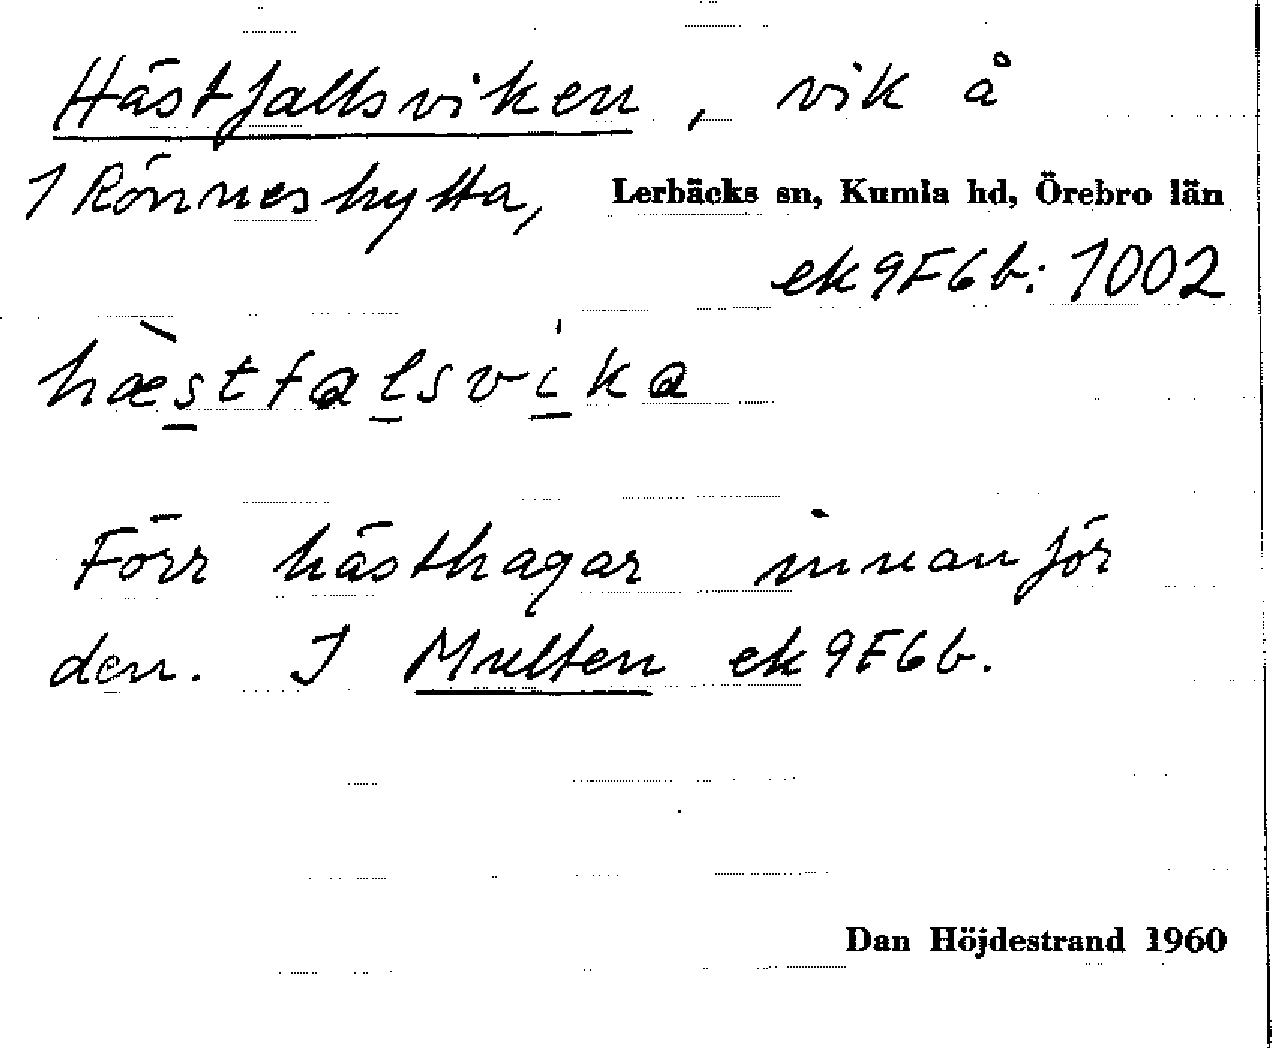 Hästfallsviken, vik å
1 Rönneshytta, Lerbäcks sn, Kumla hd, Örebro län
ek9F6b: 1002
hæ̀s̲tfɑl̲svi̲̍kɑ
Förr hästhagar innanför
den. I Multen ek9F6b.
Dan Höjdestrand 1960